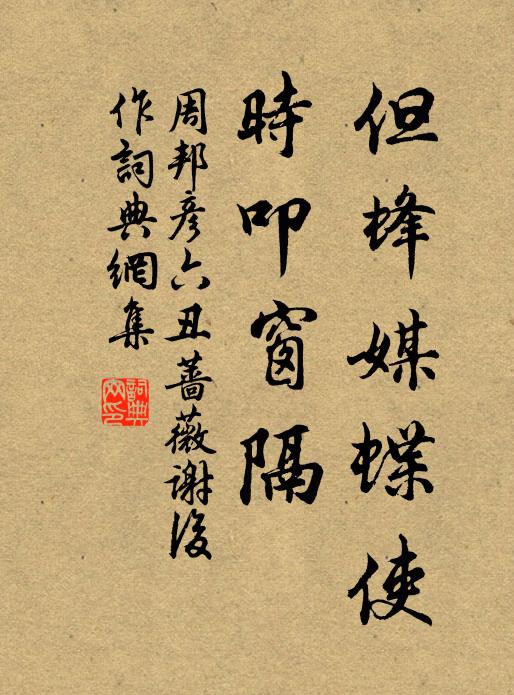 但蜂媒蝶使
時叩窗隔
周邦彦六丑薔薇謝後
作詞典網集
詞典網印